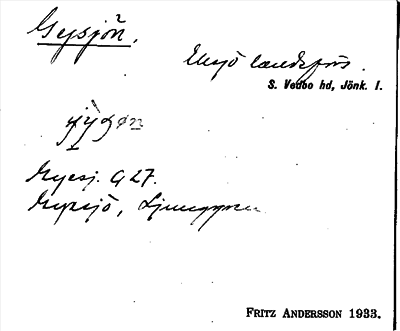 Gysjön.
Eksjö landsförs.
S. Vedbo hd, Jönk. l.
Myresj. G 27.
Myresjö, Ljunggren
FRITZ ANDERSSON 1933.